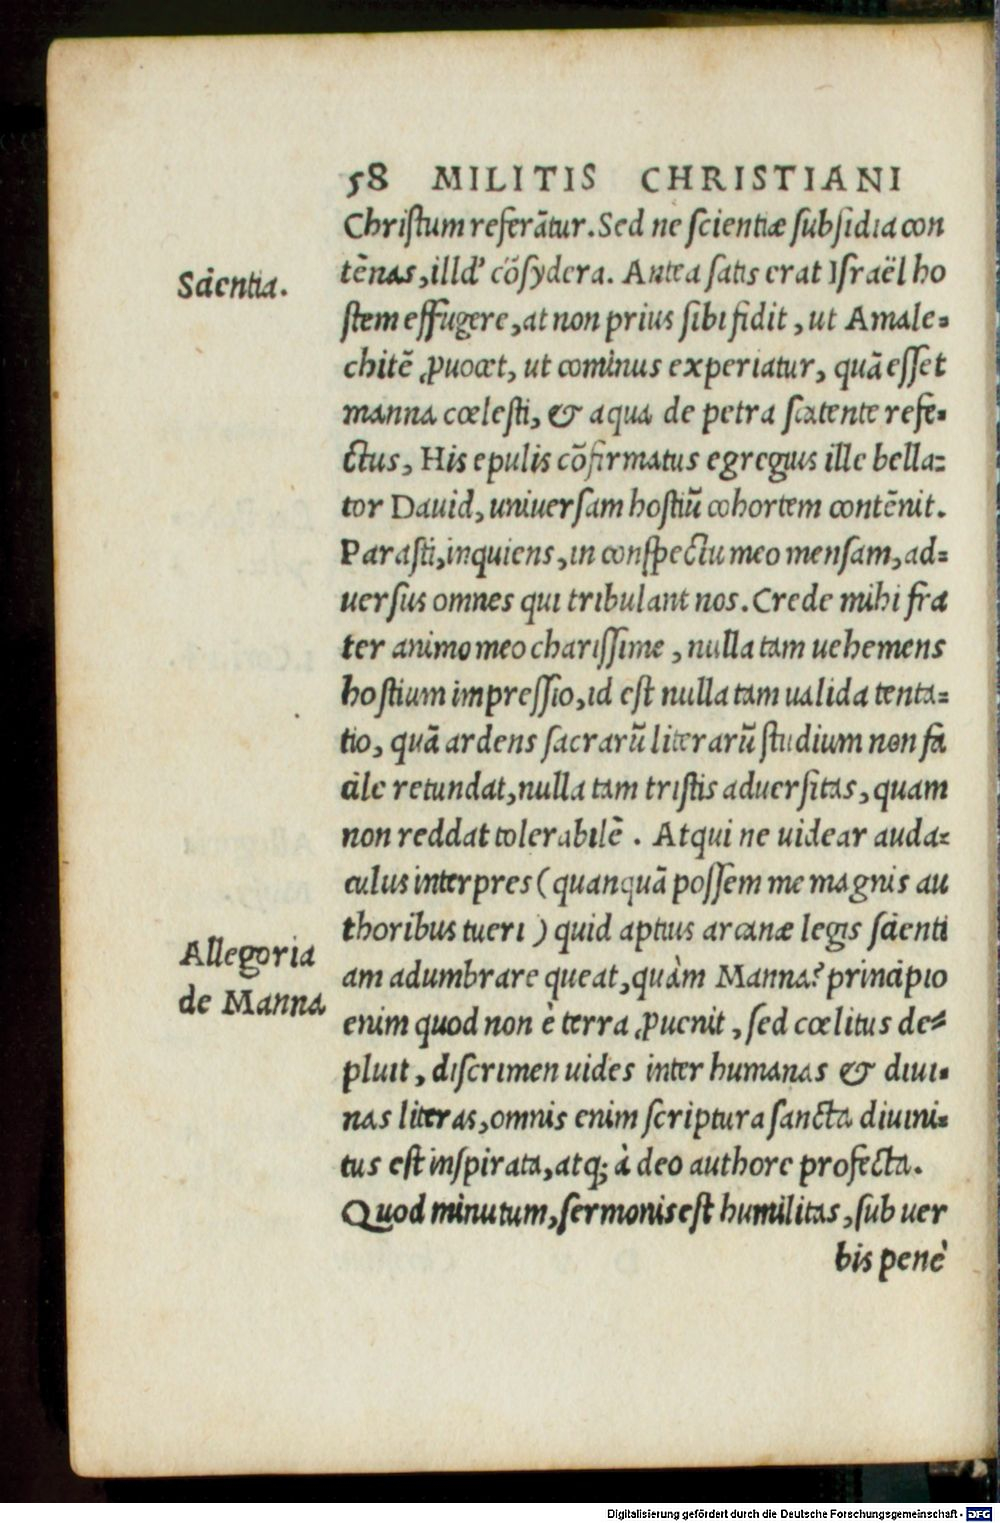 58 MILITIS CHRISTIANI
Christum referãtur. Sed ne scientiæ subsidia con
Scientia.
tẽnas, illd' cõsydera. Antea satis erat Israël ho
stem effugere, at non prius sibi fidit, ut Amale-
chitẽ ꝓuocet, ut cominus experiatur, quã esset
manna cœlesti, & aqua de petra scatente refe-
ctus, His epulis cõfirmatus egregius ille bella-
tor Dauid, uniuersam hostiũ cohortem contẽnit.
Parasti, inquiens, in conspectu meo mensam, ad-
uersus omnes qui tribulant nos. Crede mihi fra
ter animo meo charissime, nulla tam uehemens
hostium impressio, id est nulla tam ualida tenta-
tio, quã ardens sacrarũ literarũ studium non fa
cile retundat, nulla tam tristis aduersitas, quam
non reddat tolerabilẽ. Atqui ne uidear auda-
culus interpres (quanquã possem me magnis au
thoribus tueri) quid aptius arcanæ legis scienti
Allegoria
de Manna
am adumbrare queat, quàm Manna? principio
enim quod non è terra ꝓuenit, sed cœlitus de-
pluit, discrimen uides inter humanas & diui-
nas literas, omnis enim scriptura sancta diuini-
tus est inspirata, atq; à deo authore profecta.
Quod minutum, sermonis est humilitas, sub uer
bis penè
Digitalisierung gefördert durch die Deutsche Forschungsgemeinschaft - DFG